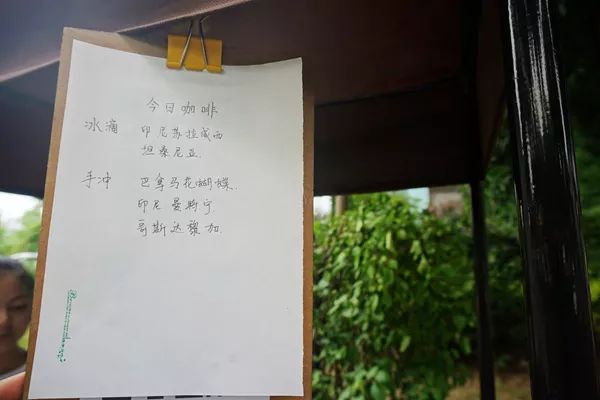 今日咖啡
冰滴 印尼苏拉威西
坦桑尼亚.
手冲 巴拿马花蝴蝶.
印尼曼特宁.
哥斯达黎加.